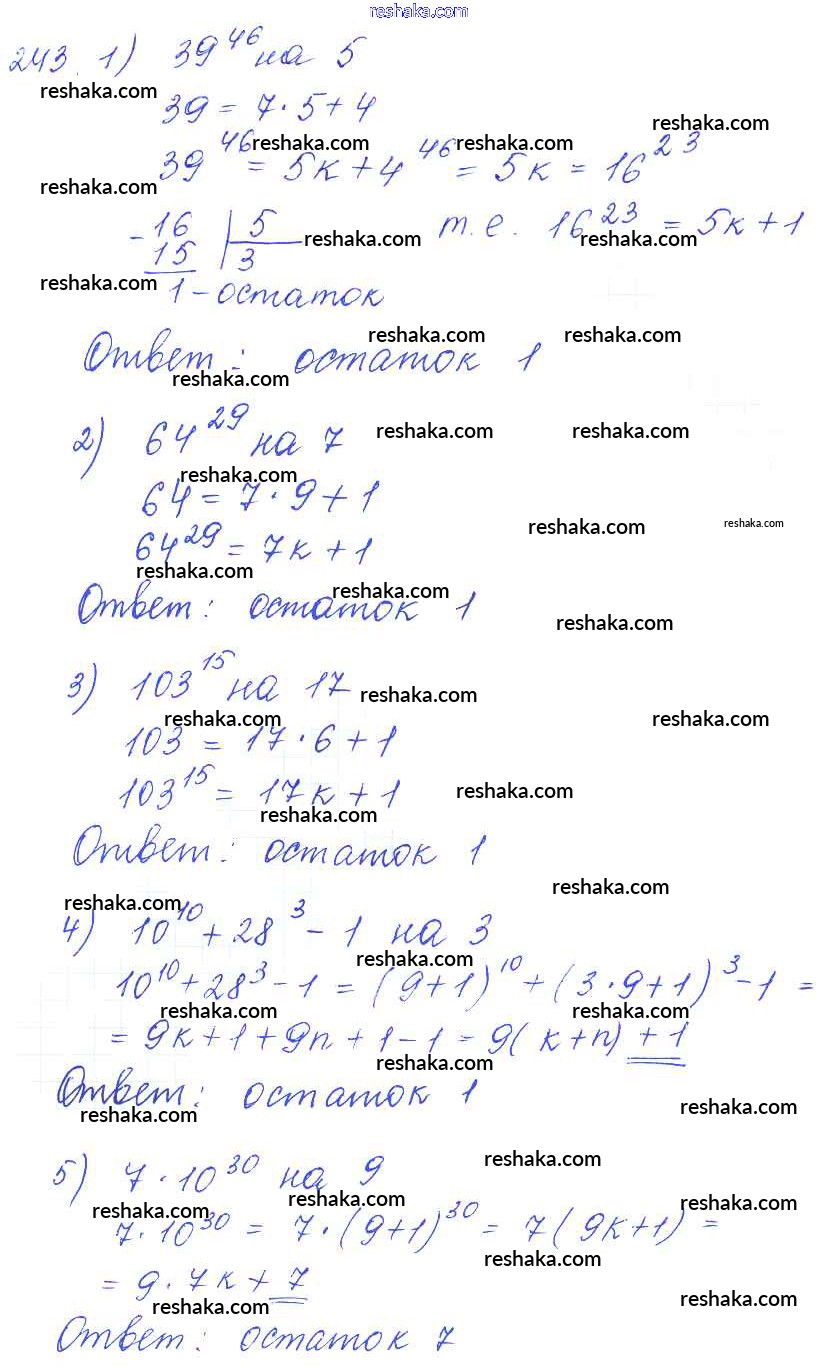 reshaka.com
243. 1) 39^46 на 5
reshaka.com
39 = 7·5+4
reshaka.com
reshaka.com reshaka.com
39^46 = 5k+4^46 = 5k = 16^23
reshaka.com
-16 | 5 т.е. 16^23 = 5k+1
15 | 3
reshaka.com reshaka.com
reshaka.com
1 - остаток
reshaka.com reshaka.com
Ответ: остаток 1
reshaka.com
2) 64^29 на 7
reshaka.com reshaka.com
reshaka.com
64 = 7·9+1
reshaka.com reshaka.com
64^29 = 7k+1
reshaka.com
reshaka.com
Ответ: остаток 1
reshaka.com
3) 103^15 на 17
reshaka.com
reshaka.com reshaka.com
103 = 17·6+1
103^15 = 17k+1
reshaka.com
reshaka.com
Ответ: остаток 1
reshaka.com
reshaka.com
4) 10^10 + 28^3 - 1 на 3
reshaka.com
10^10 + 28^3 - 1 = (9+1)^10 + (3·9+1)^3 - 1 =
reshaka.com reshaka.com
= 9k+1+9n+1-1 = 9(k+n)+1
reshaka.com
Ответ: остаток 1
reshaka.com reshaka.com
5) 7·10^30 на 9
reshaka.com
reshaka.com reshaka.com reshaka.com
7·10^30 = 7·(9+1)^30 = 7(9k+1) =
reshaka.com
= 9·7k+7
reshaka.com reshaka.com
Ответ: остаток 7